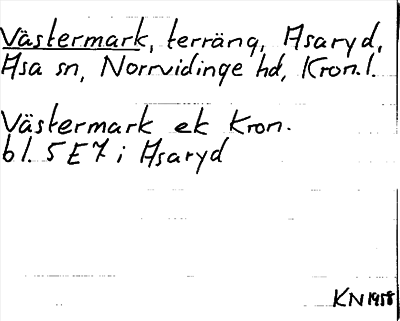 Västermark, terräng, Asaryd,
Asa sn, Norrvidinge hd, Kron. l.
Västermark ek Kron.
bl. 5 E 7 i Asaryd
KN 1958